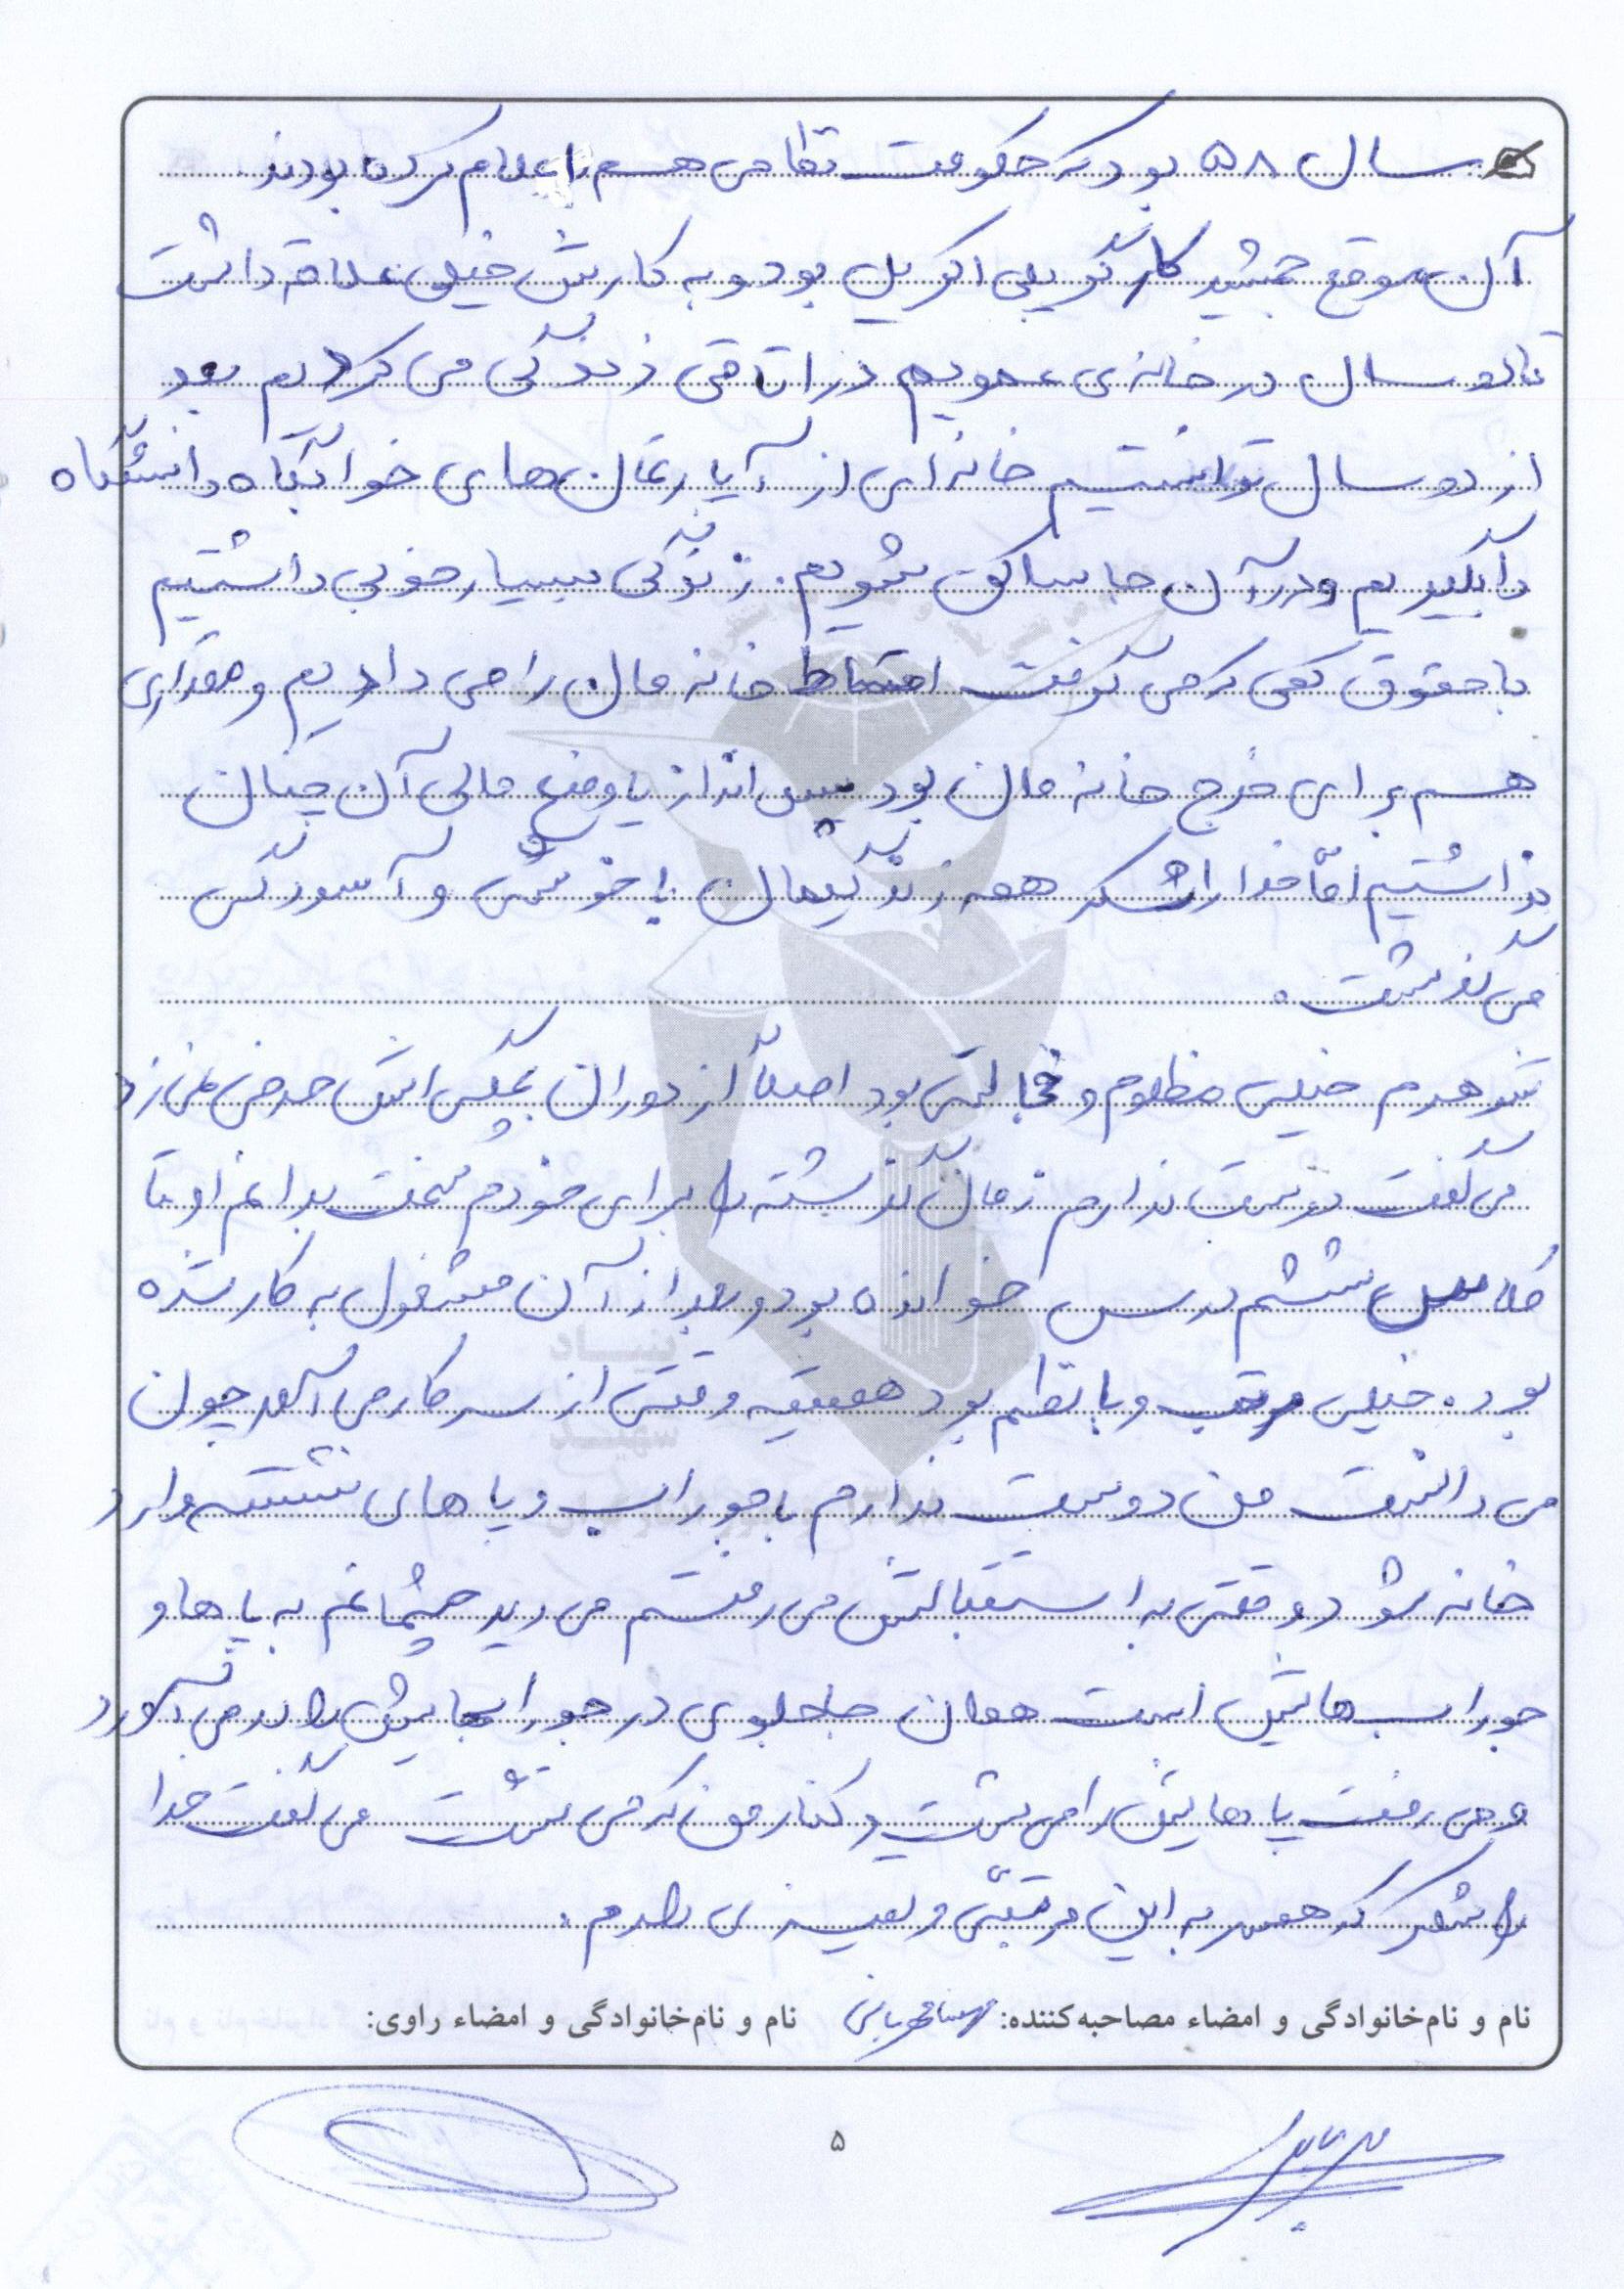 سال ۵۸ بود که حکومت نظامی هم اعلام کرده بودند
آن موقع جمشید کارگر پلی اکریل بود و به کارش خیلی علاقه داشت
تا دو سال در خانه‌ی عمویم در اتاقی زندگی می کردیم بعد
از دو سال توانستیم خانه ای از آپارتمان های خوابگاه دانشگاه
را بگیریم و در آن جا ساکن شویم. زندگی بسیار خوبی داشتیم
با حقوق کمی که می گرفت اقساط خانه مان را می دادیم و مقداری
هم برای خرج خانه مان بود پس انداز یا وضع مالی آن چنان
نداشتیم امّا خدا را شکر همه زندگیمان با خوشی و آسودگی
می گذشت.
شوهرم خیلی مظلوم و خجالتی بود اصلاً از دوران بچگی اش حرفی نمی زد
می گفت دوست ندارم زمان گذشته را برای خودم سخت بدانم او تا
کلاس ششم درس خوانده بود و بعد از آن مشغول به کار شده
بود. خیلی مرتب و با نظم بود همیشه وقتی از سر کار می آمد چون
می دانست من دوست ندارم با جوراب و پا های نشسته وارد
خانه شود وقتی به استقبالش می رفتم می دید چشمانم به پا ها و
جوراب هایش است همان جلوی در جوراب‌هایش را در می آورد
و می رفت پا هایش را می شست و کنار من که می نشست می گفت خدا
را شکر که همسر به این مرتبّی و تمیزی دارم.
نام و نام‌خانوادگی و امضاء مصاحبه‌کننده: نام و نام‌خانوادگی و امضاء راوی:
۵